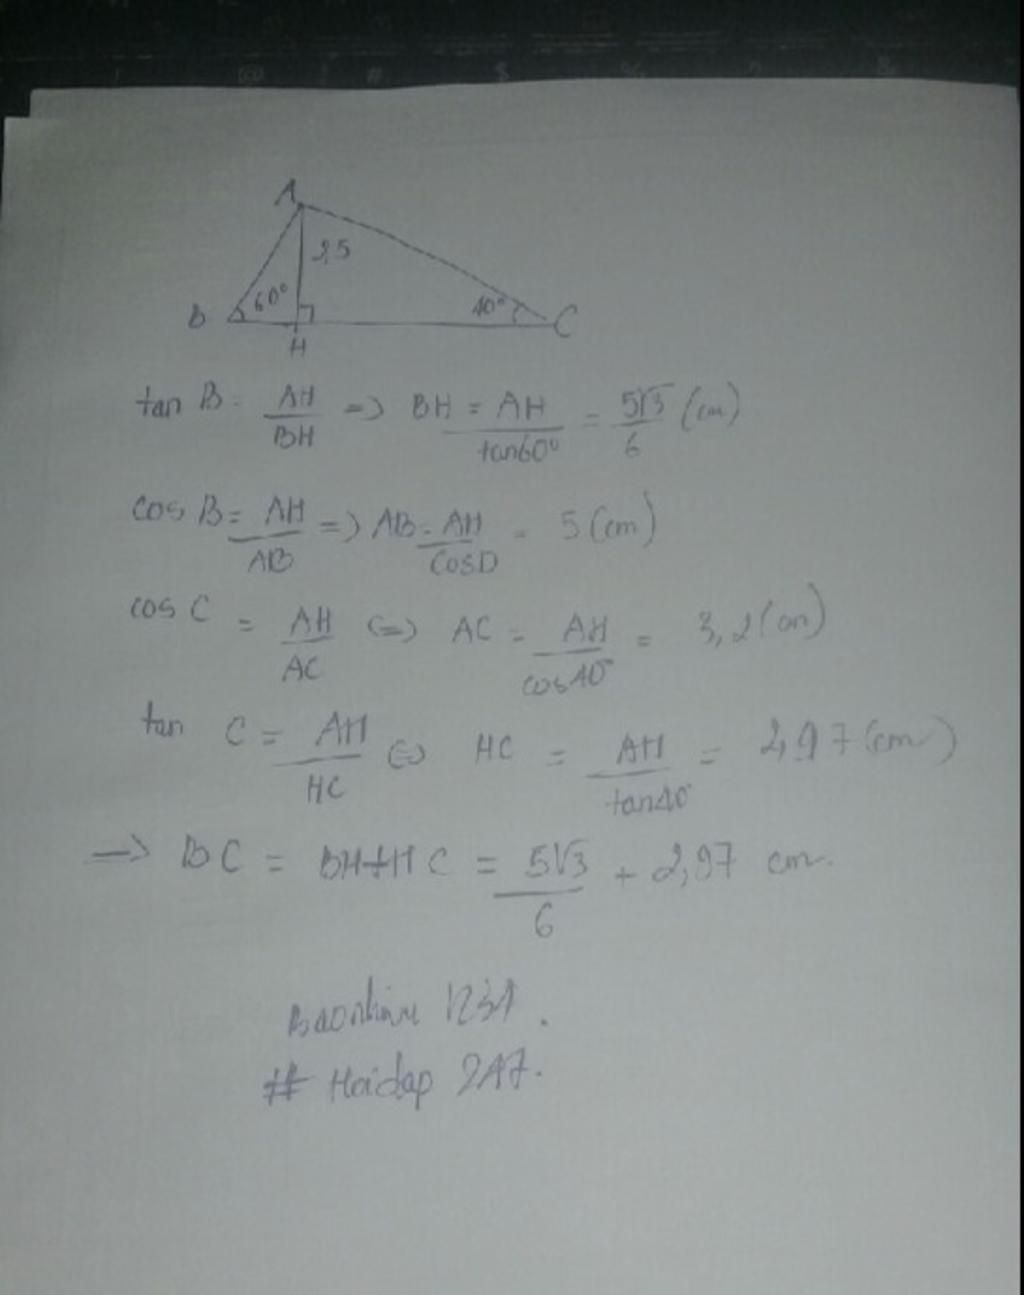 A
2,5
B 60° 40° C
H
tan B = AH/BH => BH = AH/tan60° = 5√3/6 (cm)
cos B = AH/AB => AB = AH/cosB = 5 (cm)
cos C = AH/AC <=> AC = AH/cos40° = 3,2 (cm)
tan C = AH/HC <=> HC = AH/tan40° = 2,97 (cm)
-> BC = BH+HC = 5√3/6 + 2,97 cm.
# Hoidap 247.